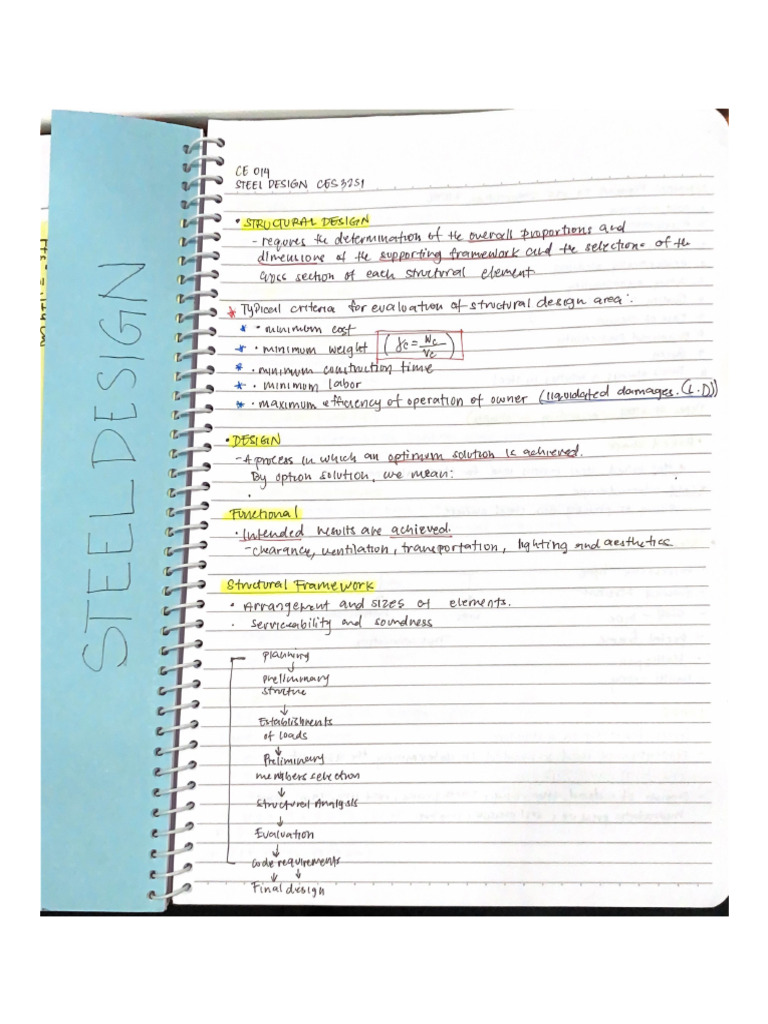 STEEL DESIGN
CE 014
STEEL DESIGN CES 3251
• STRUCTURAL DESIGN
- requires the determination of the overall proportions and
dimensions of the supporting framework and the selections of the
cross section of each structural element
* Typical criteria for evaluation of structural design area:
* • minimum cost
* • minimum weight (γc = Wc/Vc)
* • minimum construction time
* • minimum labor
* • maximum efficiency of operation of owner (liquidated damages. (L.D))
• DESIGN
- A process in which an optimum solution is achieved.
By option solution, we mean:
•
Functional
• Intended results are achieved.
- clearance, ventilation, transportation, lighting and aesthetics
Structural Framework
• Arrangement and sizes of elements.
• serviceability and soundness
planning
↓
preliminary
structure
↓
Establishments
of loads
↓
Preliminary
members selection
↓
Structural Analysis
↓
Evaluation
↓
code requirements
↓ ↓
Final design